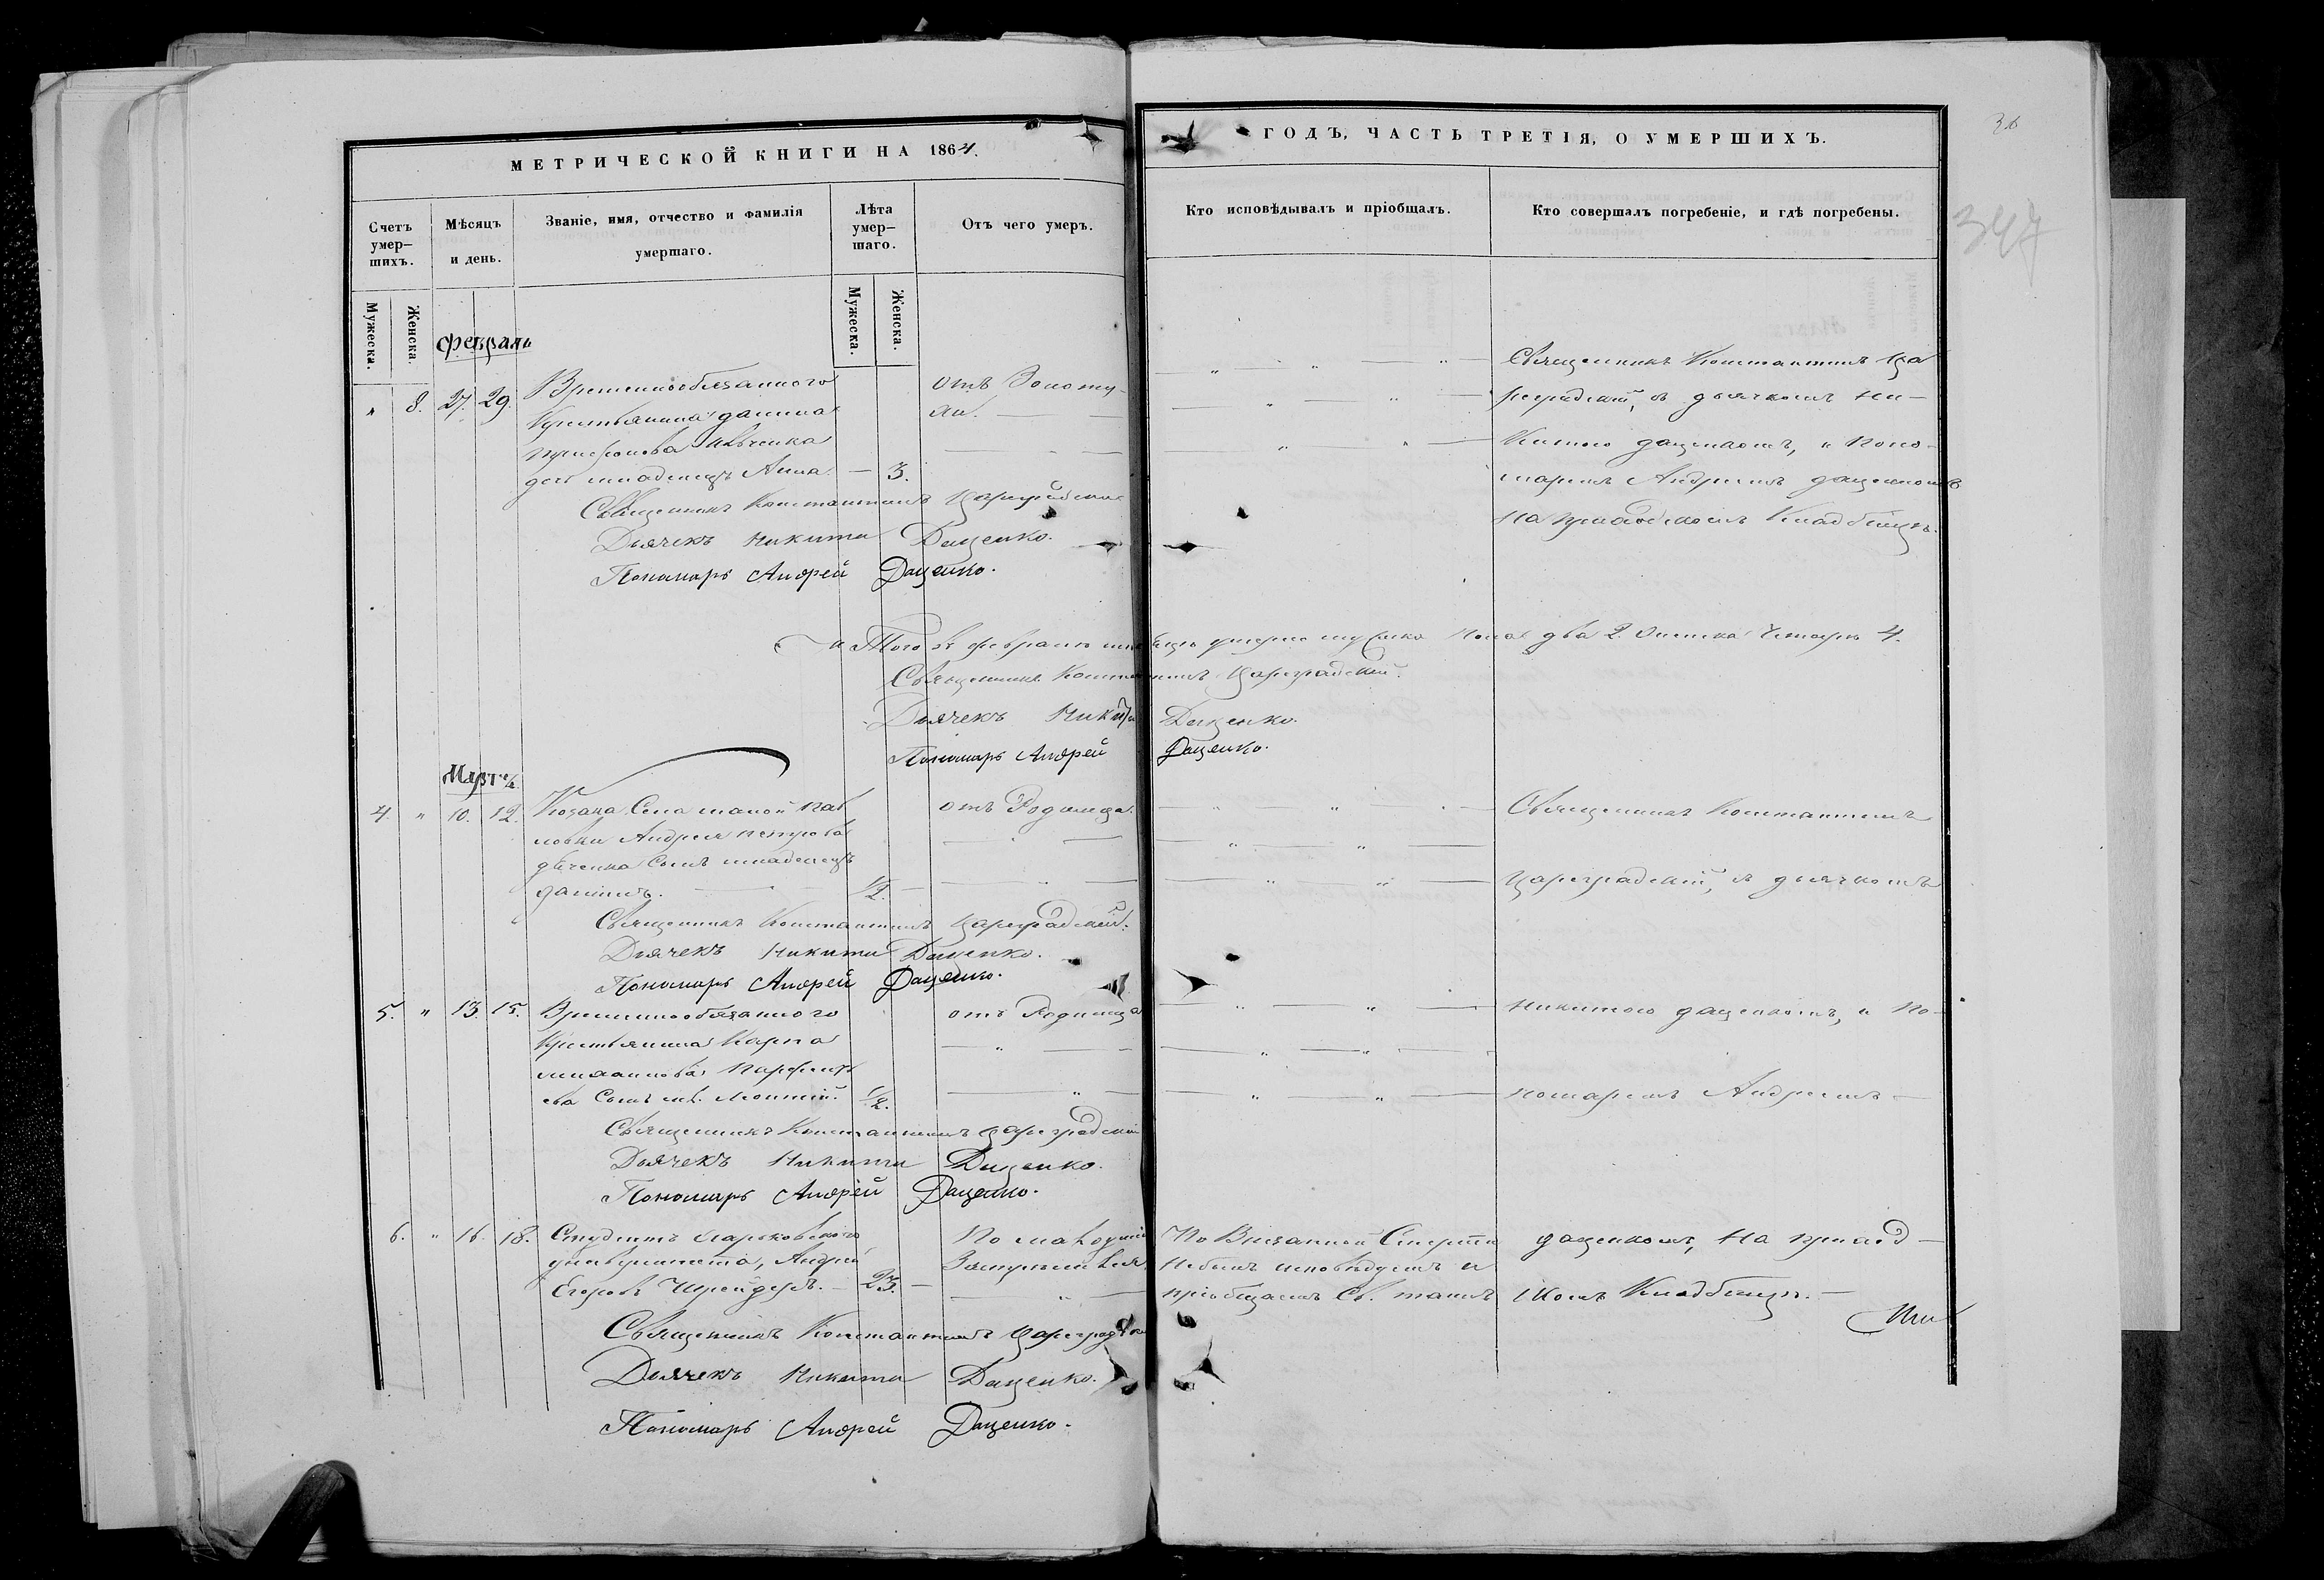 МЕТРИЧЕСКОЙ КНИГИ НА 1864.
ГОДЪ, ЧАСТЬ ТРЕТІЯ, О УМЕРШИХЪ.
347
Счетъ умер-
шихъ.
Мѣсяцъ
и день.
Званіе, имя, отчество и фамилія
умершаго.
Лѣта
умер-
шаго.
Отъ чего умеръ.
Кто исповѣдывалъ и пріобщалъ.
Кто совершалъ погребеніе, и гдѣ погребены.
Мужеска.
Женска.
Мужеска.
Женска.
Февраль
" 8. 27. 29.
Временнообязанного
Крестьянина Данила
дочь младенецъ Анна. — 3.
отъ Золоту-
хи.
Священникъ Константинъ Ца
реградскій, съ дьячкомъ Ни-
китою Даценкомъ, и Поно-
маремъ Андреемъ Даценкомъ
на приходскомъ Кладбищѣ.
Священникъ Константинъ Цареградскій
Дьячекъ Никита Даценко.
Пономарь Андрей Даценко.
Итого въ февралѣ мѣсяцѣ умерло мужеска пола два 2. женска четыре 4.
Священникъ Константинъ Цареградскій.
Дьячекъ Никита Даценко.
Пономарь Андрей Даценко.
Мартъ
4. " 10. 12.
Козака Села малой Пав
ловки Андрея Петрова
сынъ младенецъ
Даніилъ. — 1/2. —
отъ Родимца.
Священникъ Константинъ
Цареградскій, съ дьячкомъ
Священникъ Константинъ Цареградскій.
Дьячекъ Никита Даценко.
Пономарь Андрей Даценко.
5. " 13. 15.
Временнообязанного
Крестьянина Карпа
сынъ мл. 1/2.
отъ Родимца
Никитою Даценкомъ, и По-
номаремъ Андреемъ —
Священникъ Константинъ Цареградскій
Дьячекъ Никита Даценко.
Пономарь Андрей Даценко.
6. " 16. 18.
Студентъ Харьковского
университета, Андрей
Егоровъ Шрейдеръ. — 23. —
По Внезапной Смерти
Небылъ исповѣдуемъ и
пріобщаемъ Св. таинъ
Даценкомъ, на приход-
скомъ Кладбищѣ. —
Священникъ Константинъ Цареградскій
Дьячекъ Никита Даценко.
Пономарь Андрей Даценко.